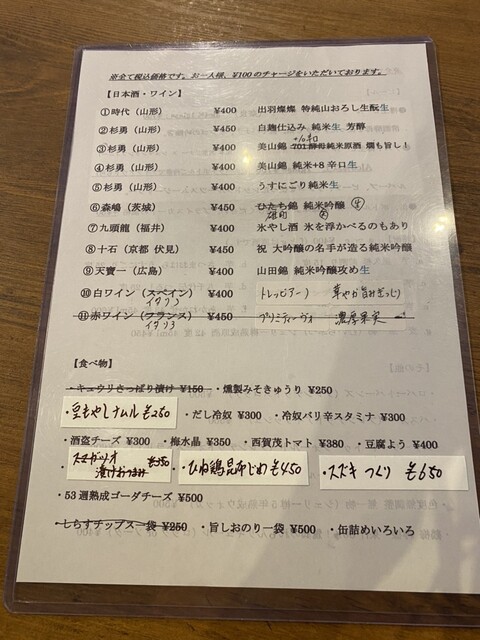 ※全て税込価格です。お一人様、¥100のチャージをいただいております。
【日本酒・ワイン】
①時代（山形） ¥400 出羽燦燦 特純山おろし生酛生
②杉勇（山形） ¥450 白麹仕込み 純米生 芳醇
③杉勇（山形） ¥400 美山錦 701酵母純米原酒 燗も旨し！
④杉勇（山形） ¥400 美山錦 純米+8 辛口生
⑤杉勇（山形） ¥400 うすにごり純米生
⑥森嶋（茨城） ¥450 ひたち錦 純米吟醸 生
雄町
⑦九頭龍（福井） ¥400 氷やし酒 氷を浮かべるのもあり
⑧十石（京都 伏見） ¥450 祝 大吟醸の名手が造る純米吟醸
⑨天寶一（広島） ¥400 山田錦 純米吟醸攻め生
⑩白ワイン（スペイン） ¥400 トレッビアーノ 華やか旨みぎっしり
イタリア
⑪赤ワイン（フランス） ¥450 プリミティーヴォ 濃厚果実
イタリア
【食べ物】
・キュウリさっぱり漬け ¥150 ・燻製みそきゅうり ¥250
・豆もやしナムル ¥250 ・だし冷奴 ¥300 ・冷奴バリ辛スタミナ ¥300
・酒盗チーズ ¥300 ・梅水晶 ¥350 ・西賀茂トマト ¥380 ・豆腐よう ¥400
・スマガツオ漬けおつまみ ¥350 ・ひね鶏昆布じめ ¥450 ・スズキつくり ¥650
・53週熟成ゴーダチーズ ¥500
・しらすチップス一袋 ¥250 ・旨しおのり一袋 ¥500 ・缶詰めいろいろ